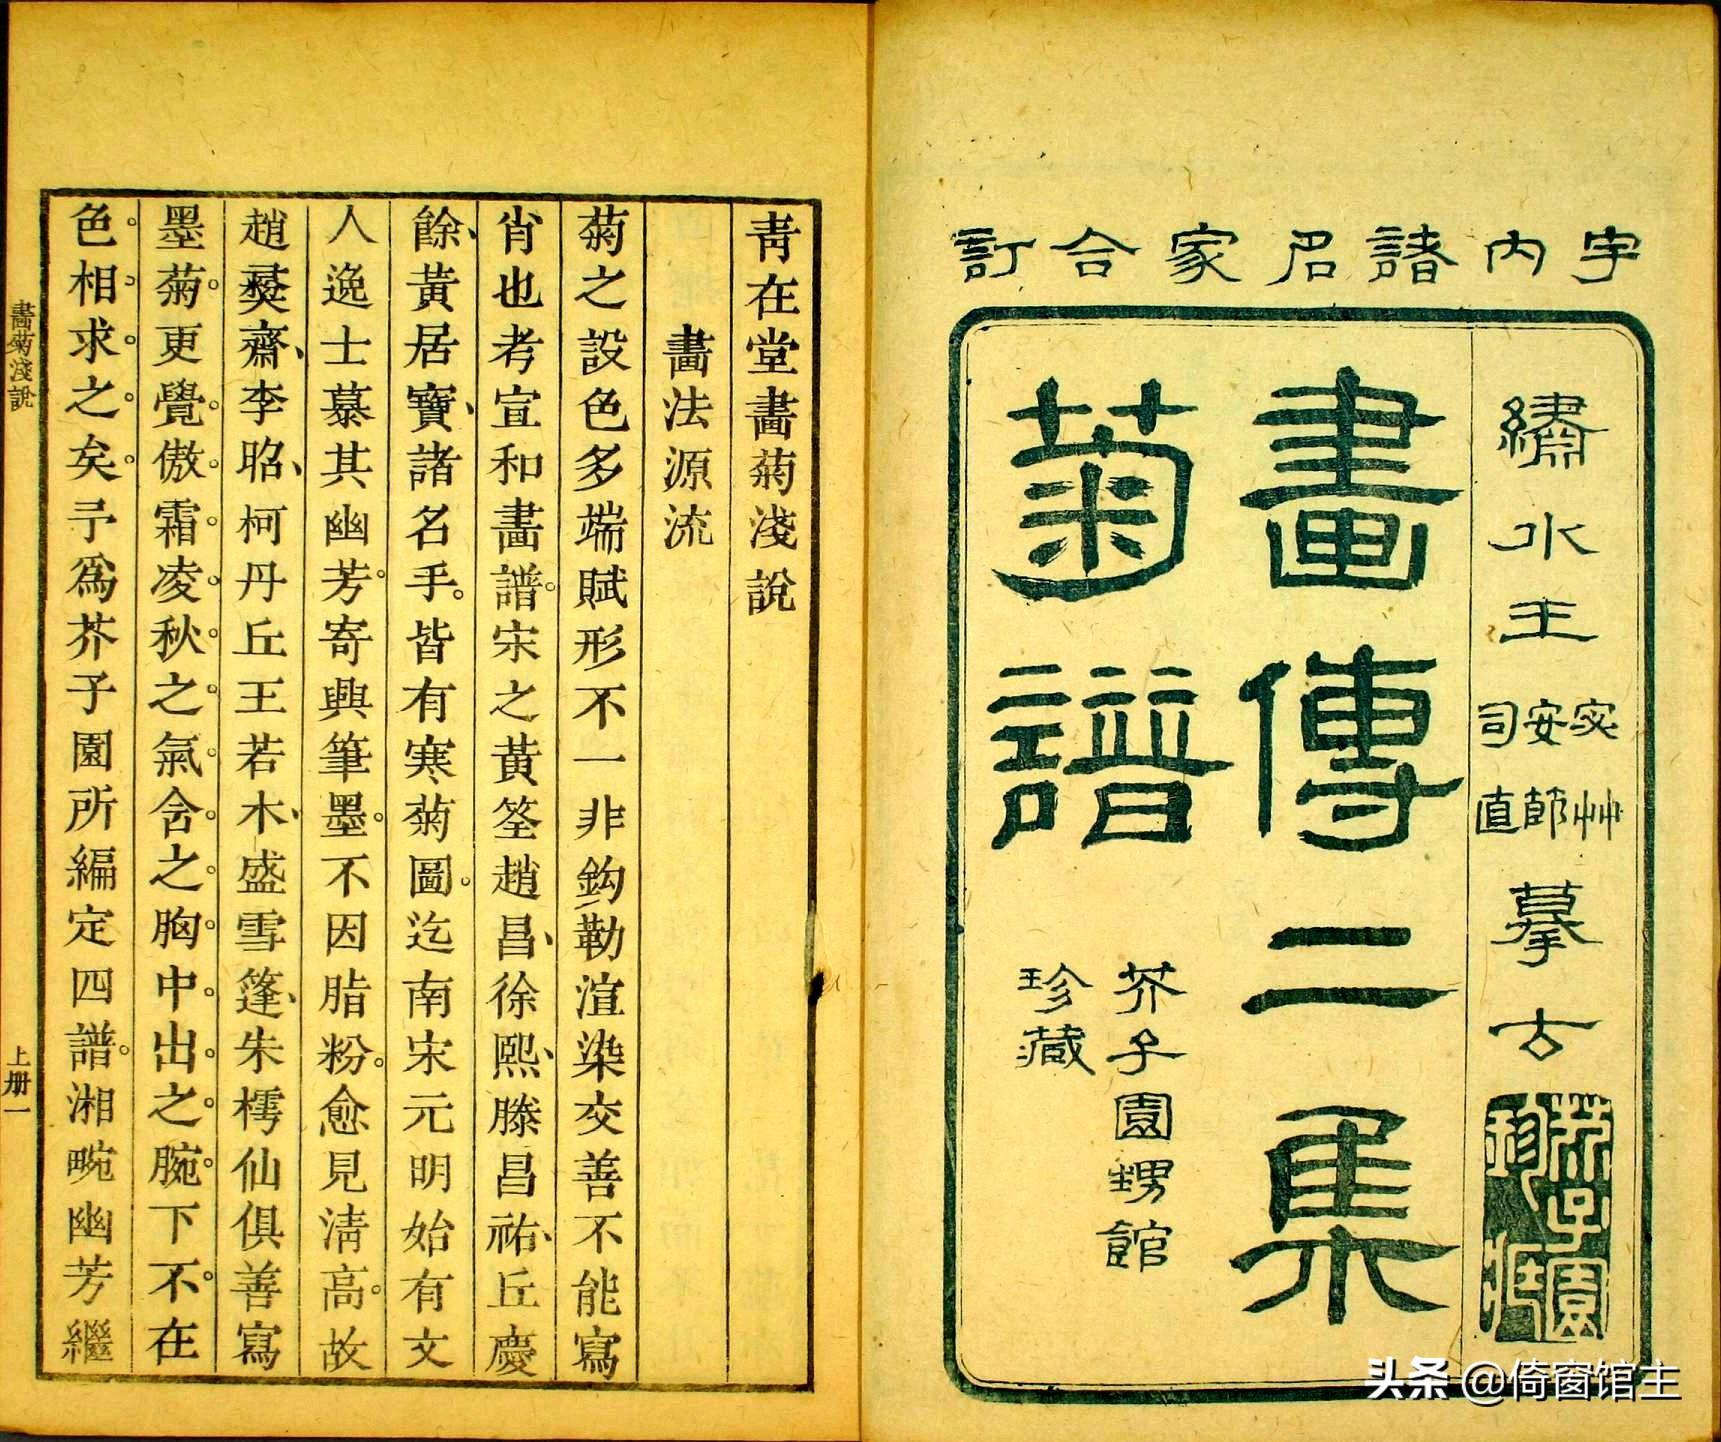 宇內諸名家合訂
繡水王宓艸安節司直摹古
畫傳二集
菊譜
芥子園甥館
珍藏
芥子園
珍
青在堂畫菊淺說
畫法源流
菊之設色多端賦形不一非鈎勒渲染交善不能寫
肖也考宣和畫譜。宋之黃筌趙昌、徐熙、滕昌祐、丘慶
餘、黃居寶、諸名手。皆有寒菊圖。迄南宋元明始有文
人逸士慕其幽芳。寄興筆墨。不因脂粉。愈見淸高。故
趙彝齋、李昭、柯丹丘王若木、盛雪篷、朱樗仙俱善寫
墨菊。更覺。傲。霜。凌。秋。之。氣。含。之。胸。中。出。之。腕。下。不。在
色。相。求。之。矣。予爲芥子園所編定四譜。湘畹幽芳繼
畫菊淺說
上册一
头条 @倚窗馆主